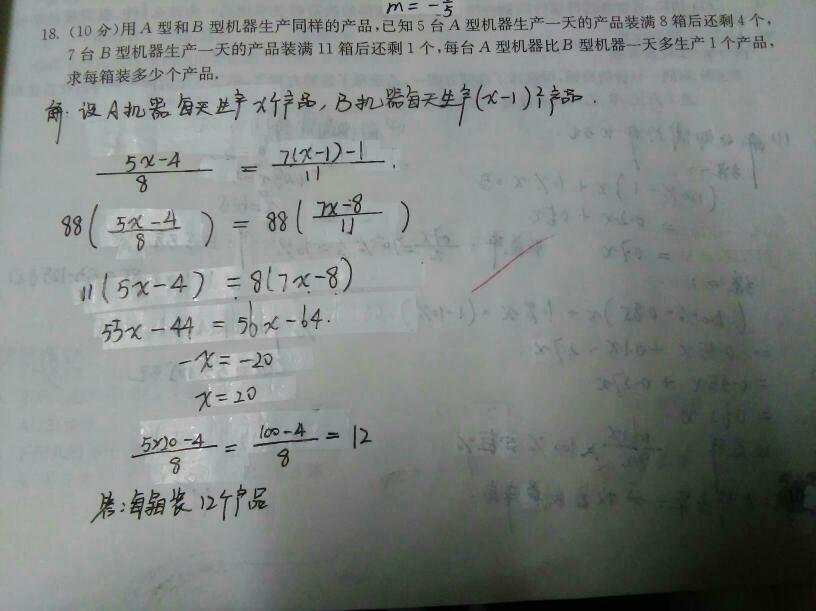 m = -1/5
18. (10分)用A型和B型机器生产同样的产品,已知5台A型机器生产一天的产品装满8箱后还剩4个,
7台B型机器生产一天的产品装满11箱后还剩1个,每台A型机器比B型机器一天多生产1个产品,
求每箱装多少个产品.
解:设A机器每天生产x个产品,B机器每天生产(x-1)个产品.
(5x-4)/8 = (7(x-1)-1)/11.
88((5x-4)/8) = 88((7x-8)/11)
11(5x-4) = 8(7x-8)
55x-44 = 56x-64.
-x = -20
x = 20
(5×20-4)/8 = (100-4)/8 = 12
答:每箱装12个产品